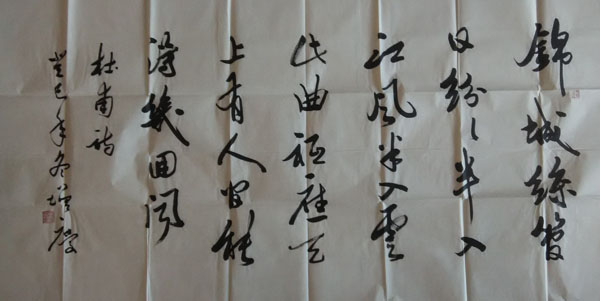 錦城絲管
日紛々半入
江風半入雲
此曲祗應天
上有人間能
得幾回聞
杜甫詩
癸巳年冬